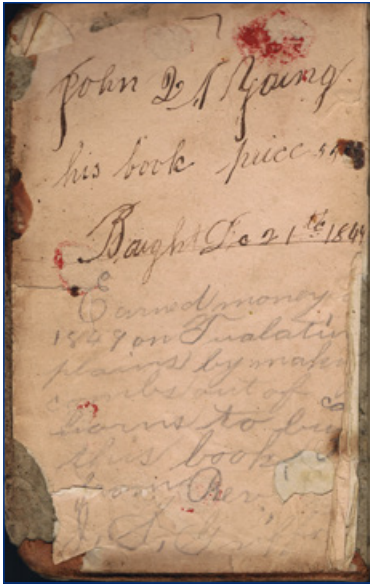 John Q A Young
his book price
Bought De 21 th 1849
Earned money
1849 on Tualatin
plains by mak
combs out of
horns to bu
this book
from Rev
J, S, Grif